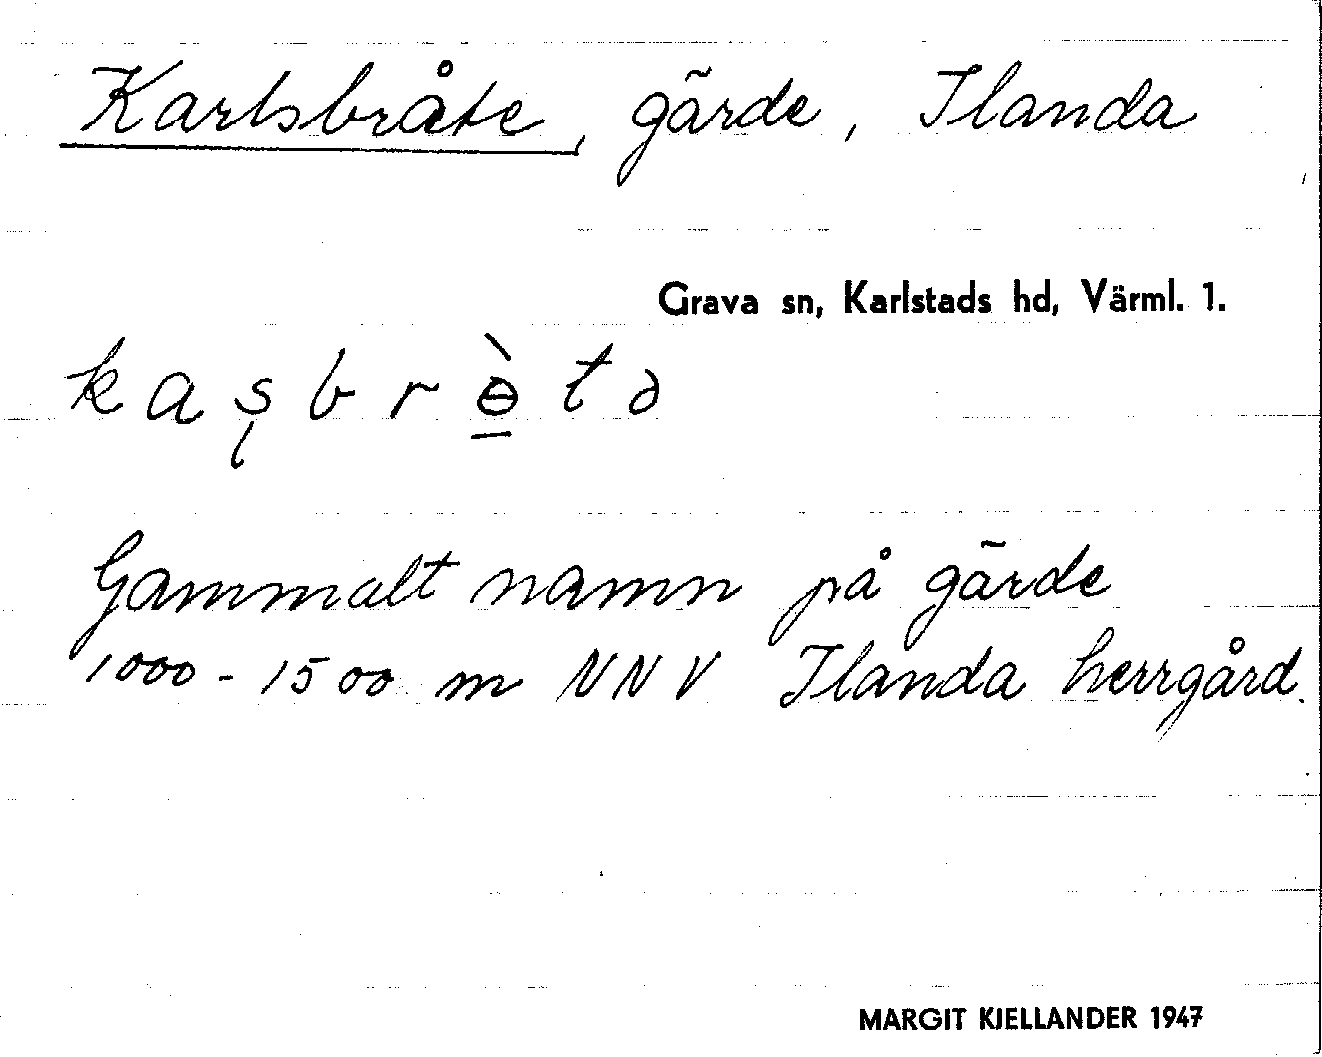 Karlsbråte, gärde, Ilanda
Grava sn, Karlstads hd, Värml. 1.
kaʂbrɵ̱̀tə
Gammalt namn på gärde
1000-1500 m NNV Ilanda herrgård.
MARGIT KJELLANDER 1947